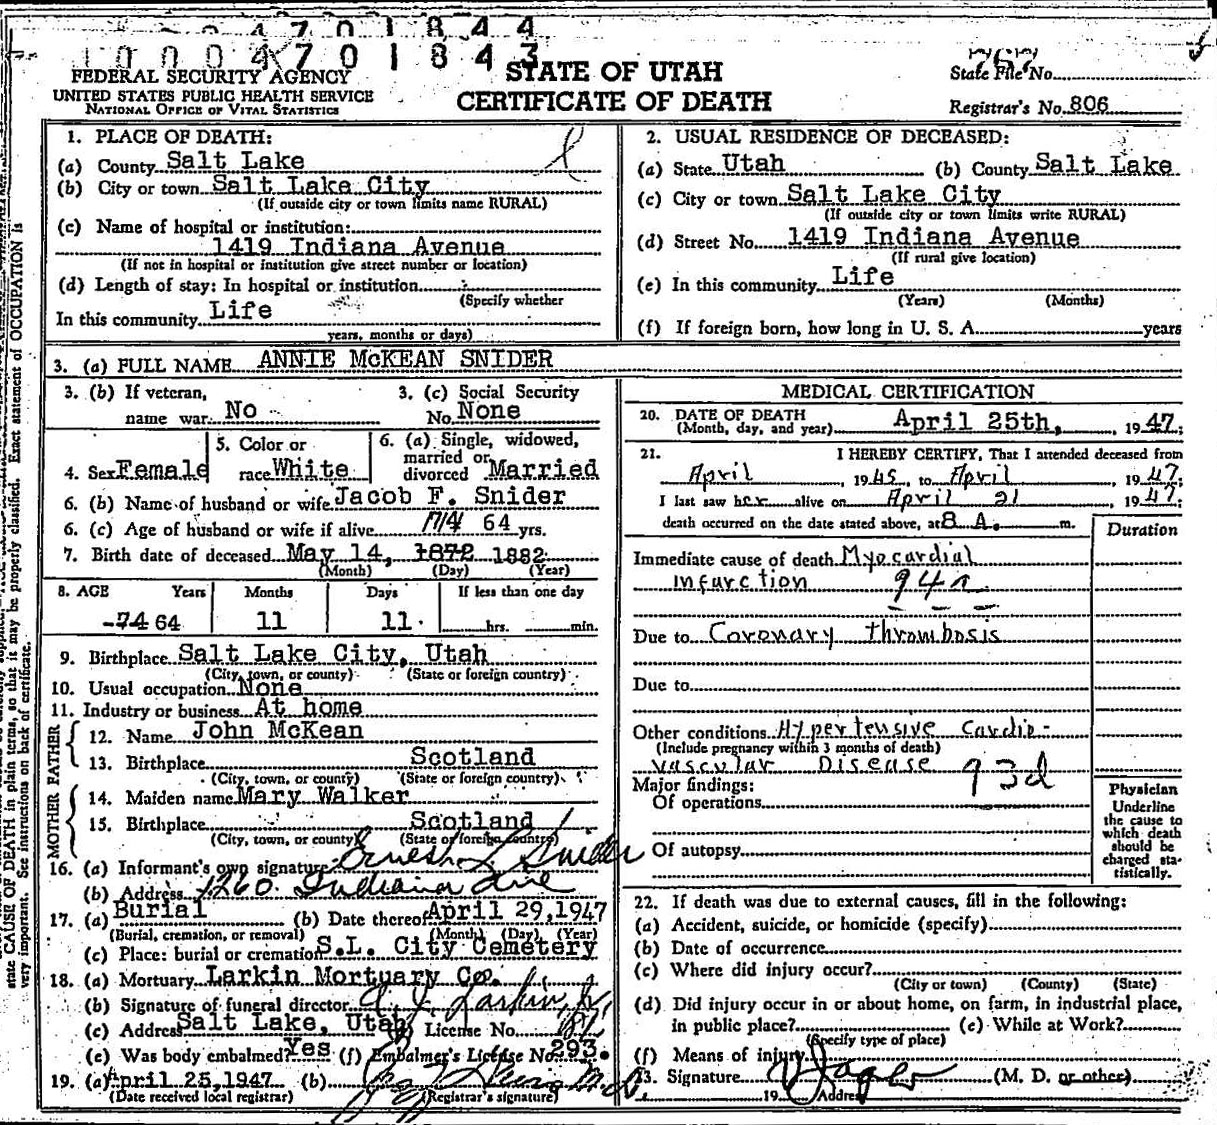 4 7 0 1 8 4 4
1 0 0 0 4 7 0 1 8 4 3
FEDERAL SECURITY AGENCY
UNITED STATES PUBLIC HEALTH SERVICE
NATIONAL OFFICE OF VITAL STATISTICS
STATE OF UTAH
CERTIFICATE OF DEATH
State File No. 767
Registrar's No. 806
state CAUSE OF DEATH in plain terms, so that it may be properly classified. Exact statement of OCCUPATION is
very important. See instructions on back of certificate.
1. PLACE OF DEATH:
(a) County Salt Lake
(b) City or town Salt Lake City
(If outside city or town limits name RURAL)
(c) Name of hospital or institution:
1419 Indiana Avenue
(If not in hospital or institution give street number or location)
(d) Length of stay: In hospital or institution
(Specify whether
In this community Life
years, months or days)
2. USUAL RESIDENCE OF DECEASED:
(a) State Utah (b) County Salt Lake
(c) City or town Salt Lake City
(If outside city or town limits write RURAL)
(d) Street No. 1419 Indiana Avenue
(If rural give location)
(e) In this community Life
(Years) (Months)
(f) If foreign born, how long in U. S. A. years
3. (a) FULL NAME ANNIE McKEAN SNIDER
3. (b) If veteran, 3. (c) Social Security
name war. No No. None
4. Sex Female
5. Color or
race White
6. (a) Single, widowed,
married or
divorced Married
6. (b) Name of husband or wife Jacob F. Snider
6. (c) Age of husband or wife if alive 74 64 yrs.
7. Birth date of deceased May 14, 1872 1882
(Month) (Day) (Year)
8. AGE Years Months Days If less than one day
74 64 11 11 hrs. min.
9. Birthplace Salt Lake City, Utah
(City, town, or county) (State or foreign country)
10. Usual occupation None
11. Industry or business At home
FATHER
12. Name John McKean
13. Birthplace Scotland
(City, town, or county) (State or foreign country)
MOTHER
14. Maiden name Mary Walker
15. Birthplace Scotland
(City, town, or county) (State or foreign country)
16. (a) Informant's own signature Ernest L. Snider
(b) Address 1260 Indiana Ave
17. (a) Burial (b) Date thereof April 29, 1947
(Burial, cremation, or removal) (Month) (Day) (Year)
(c) Place: burial or cremation S.L. City Cemetery
18. (a) Mortuary Larkin Mortuary Co.
(b) Signature of funeral director Larkin Jr.
(c) Address Salt Lake, Utah License No.
(e) Was body embalmed? Yes (f) Embalmer's License No. 293.
19. (a) April 25, 1947 (b) M.D.
(Date received local registrar) (Registrar's signature)
MEDICAL CERTIFICATION
20. DATE OF DEATH
(Month, day, and year) April 25th, 1947;
21. I HEREBY CERTIFY, That I attended deceased from
April, 1945, to April, 1947;
I last saw her alive on April 21 1947;
death occurred on the date stated above, at 8 A. m.
Duration
Immediate cause of death Myocardial
Infurction 94a
Due to Coronary Thrombosis
Due to
Other conditions Hypertensive Cardio-
(Include pregnancy within 3 months of death)
Vascular Disease 93d
Major findings:
Of operations
Of autopsy
Physician
Underline
the cause to
which death
should be
charged sta-
tistically.
22. If death was due to external causes, fill in the following:
(a) Accident, suicide, or homicide (specify)
(b) Date of occurrence
(c) Where did injury occur?
(City or town) (County) (State)
(d) Did injury occur in or about home, on farm, in industrial place,
in public place? (e) While at Work?
(Specify type of place)
(f) Means of injury
23. Signature (M. D. or other)
19 Address